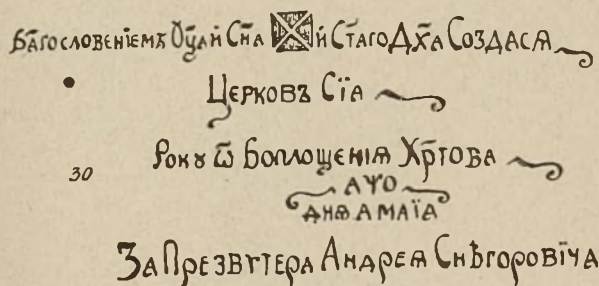 Бл҃гословенїемъ Оц҃а и Сн҃а и Ст҃аго Дх҃а Создасѧ
Церковъ Сїа
30 Рокꙋ ѿ Воплощенїѧ Хр҃това
АѰО
днѧ А маїа
За Презвѵтера Андреѧ Снѣгоровїча